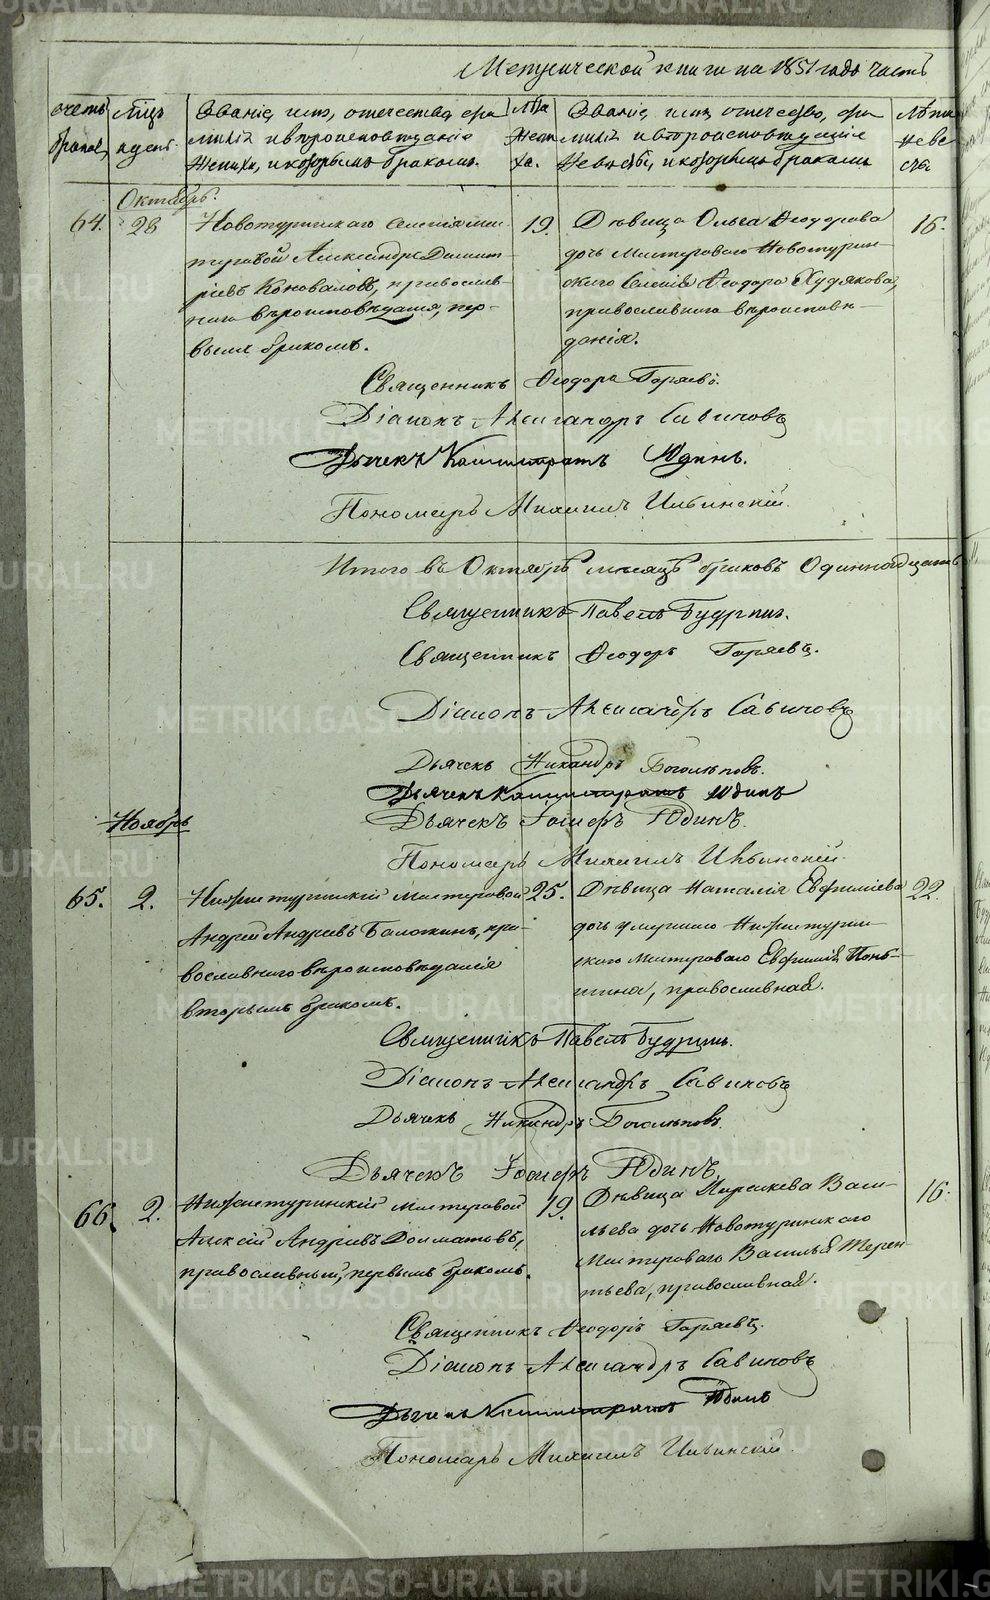 Метрической книги на 1851 года часть
счетъ браковъ
Мѣсяцъ и день
Званіе, имя, отечество, фа
милія и вѣроисповѣданіе
жениха, и которымъ бракомъ.
Лѣта жени
ха.
Званіе, имя, отечество, фа
милія и вѣроисповѣданіе
невѣсты, и которымъ бракомъ
Лѣта
неве
сты
Октябрь.
64.
28
Новотуринскаго селенія мас
теровой Александръ Димит
ріевъ Коноваловъ, православ-
наго вѣроисповѣданія, пер-
вымъ бракомъ.
19.
Дѣвица Ольга Ѳеодорова
дочь мастероваго Новотурин-
скаго селенія Ѳеодора Худякова,
православнаго вѣроисповѣ-
данія.
16.
Священникъ Ѳеодоръ Горяевъ.
Діаконъ Александръ Савиновъ
Дьячекъ Каллистратъ Юдинъ.
Пономарь Михаилъ Ильинскій.
Итого въ Октябрѣ мѣсяцѣ браковъ Одиннадцать
Священникъ Павелъ Будринъ.
Священникъ Ѳеодоръ Горяевъ.
Діаконъ Александръ Савиновъ
Дьячекъ Никандръ Боголѣповъ.
Дьячекъ Каллистратъ Юдинъ
Дьячекъ Іосифъ Юдинъ.
Пономарь Михаилъ Ильинскій.
Ноябрь
65.
2.
Нижнетуринскій мастеровой
Андрей Андреевъ Баложинъ, пра-
вославнаго вѣроисповѣданія
вторымъ бракомъ.
25.
Дѣвица Наталія Евфиміева
дочь умершаго Нижнетурин-
скаго мастероваго Евфимія Понь-
кина, православная.
22.
Священникъ Павелъ Будринъ.
Діаконъ Александръ Савиновъ
Дьячекъ Никандръ Боголѣповъ.
Дьячекъ Іосифъ Юдинъ.
66.
2.
Нижнетуринскій мастеровой
Алексій Андреевъ Долматовъ,
православный, первымъ бракомъ.
19.
Дѣвица Васи-
льева дочь Новотуринскаго
мастероваго Василья Терен-
тьева, православная.
16.
Священникъ Ѳеодоръ Горяевъ.
Діаконъ Александръ Савиновъ
Дьячекъ Каллистратъ Юдинъ
Пономарь Михаилъ Ильинскій.
METRIKI.GASO-URAL.RU